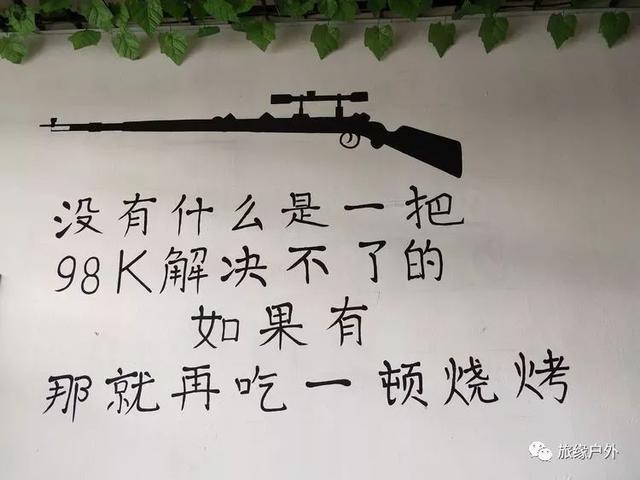 没有什么是一把
98K解决不了的
如果有
那就再吃一顿烧烤
旅缘户外